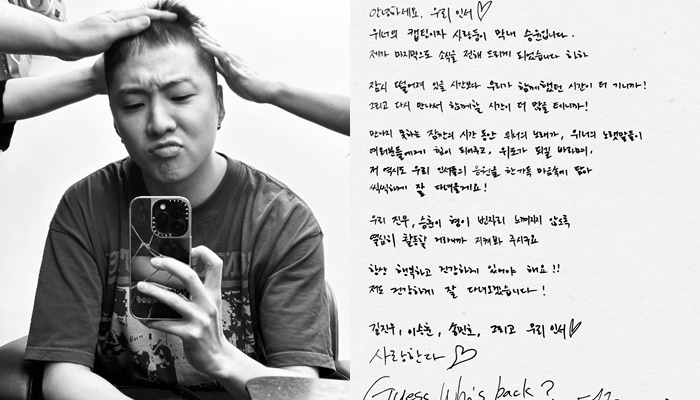 안녕하세요, 우리 인서♡
위너의 캡틴이자 사랑둥이 막내 승윤입니다.
제가 마지막으로 소식을 전해 드리게 되었습니다 하하
잠시 떨어져 있을 시간보다 우리가 함께했던 시간이 더 기니까!
그리고 다시 만나서 함께할 시간이 더 많을 테니까!
만나지 못하는 잠깐의 시간 동안 위너의 노래가, 위너의 노랫말들이
여러분들에게 힘이 되어주고, 위로가 되길 바라며,
저 역시도 우리 인서들의 응원을 한가득 마음속에 담아
씩씩하게 잘 다녀올게요!
우리 진우, 승훈이 형이 빈자리 느껴지지 않도록
열심히 활동할 거라니까 지켜봐 주시구요
항상 행복하고 건강하게 있어야 해요!!
저도 건강하게 잘 다녀오겠습니다!
김진우, 이승훈, 송민호, 그리고 우리 인서♡
사랑한다♡
Guess Who's back?